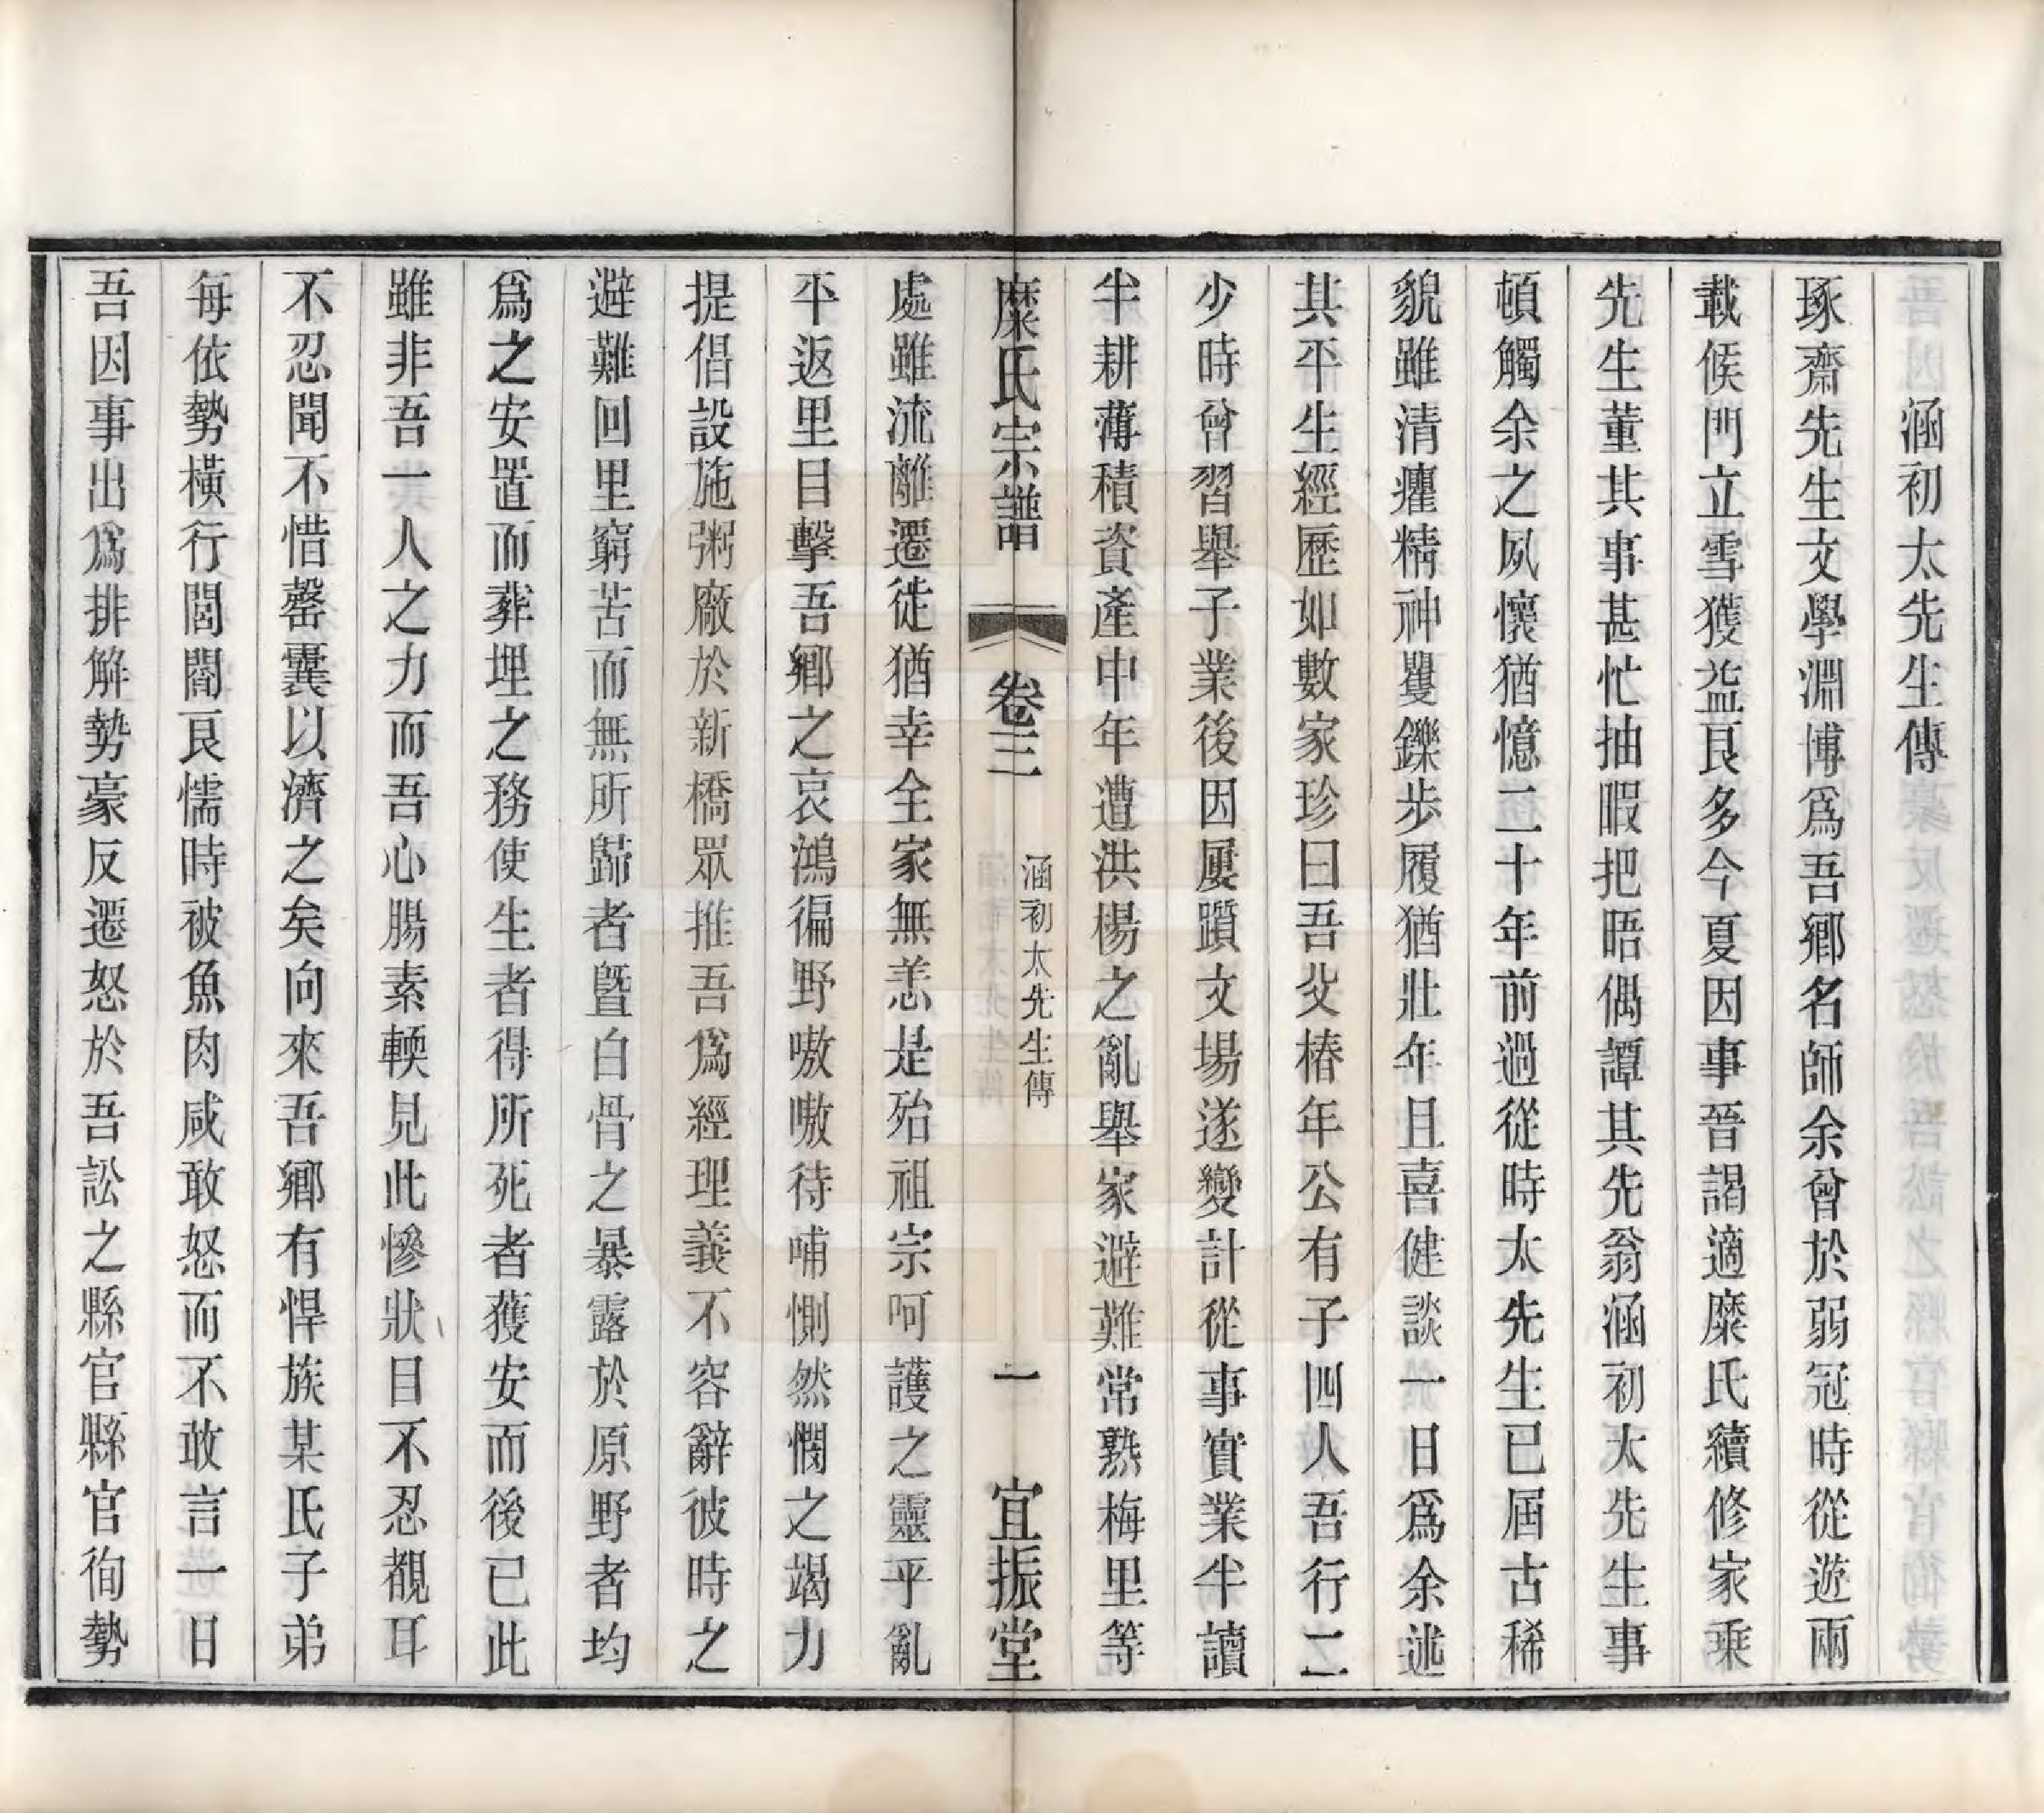 涵初太先生傳
琢齋先生文學淵博爲吾鄉名師余曾於弱冠時從遊兩
載候門立雪獲益良多今夏因事晉謁適糜氏續修家乘
先生董其事甚忙抽暇把晤偶譚其先翁涵初太先生事
頓觸余之夙懷猶憶二十年前過從時太先生已屆古稀
貌雖清癯精神矍鑠步履猶壯年且喜健談一日爲余述
其平生經歷如數家珍曰吾父椿年公有子四人吾行二
少時曾習舉子業後因屢躓文場遂變計從事實業半讀
半耕薄積資產中年遭洪楊之亂舉家避難常熟梅里等
糜氏宗譜
卷三
涵初太先生傳
一
宜振堂
處雖流離遷徙猶幸全家無恙是殆祖宗呵護之靈乎亂
平返里目擊吾鄉之哀鴻徧野嗷嗷待哺惻然憫之竭力
提倡設施粥廠於新橋眾推吾爲經理義不容辭彼時之
避難回里窮苦而無所歸者曁白骨之暴露於原野者均
爲之安置而葬埋之務使生者得所死者獲安而後已此
雖非吾一人之力而吾心腸素輭見此慘狀目不忍覩耳
不忍聞不惜罄囊以濟之矣向來吾鄉有悍族某氏子弟
每依勢橫行閭閻良懦時被魚肉咸敢怒而不敢言一日
吾因事出爲排解勢豪反遷怒於吾訟之縣官縣官徇勢